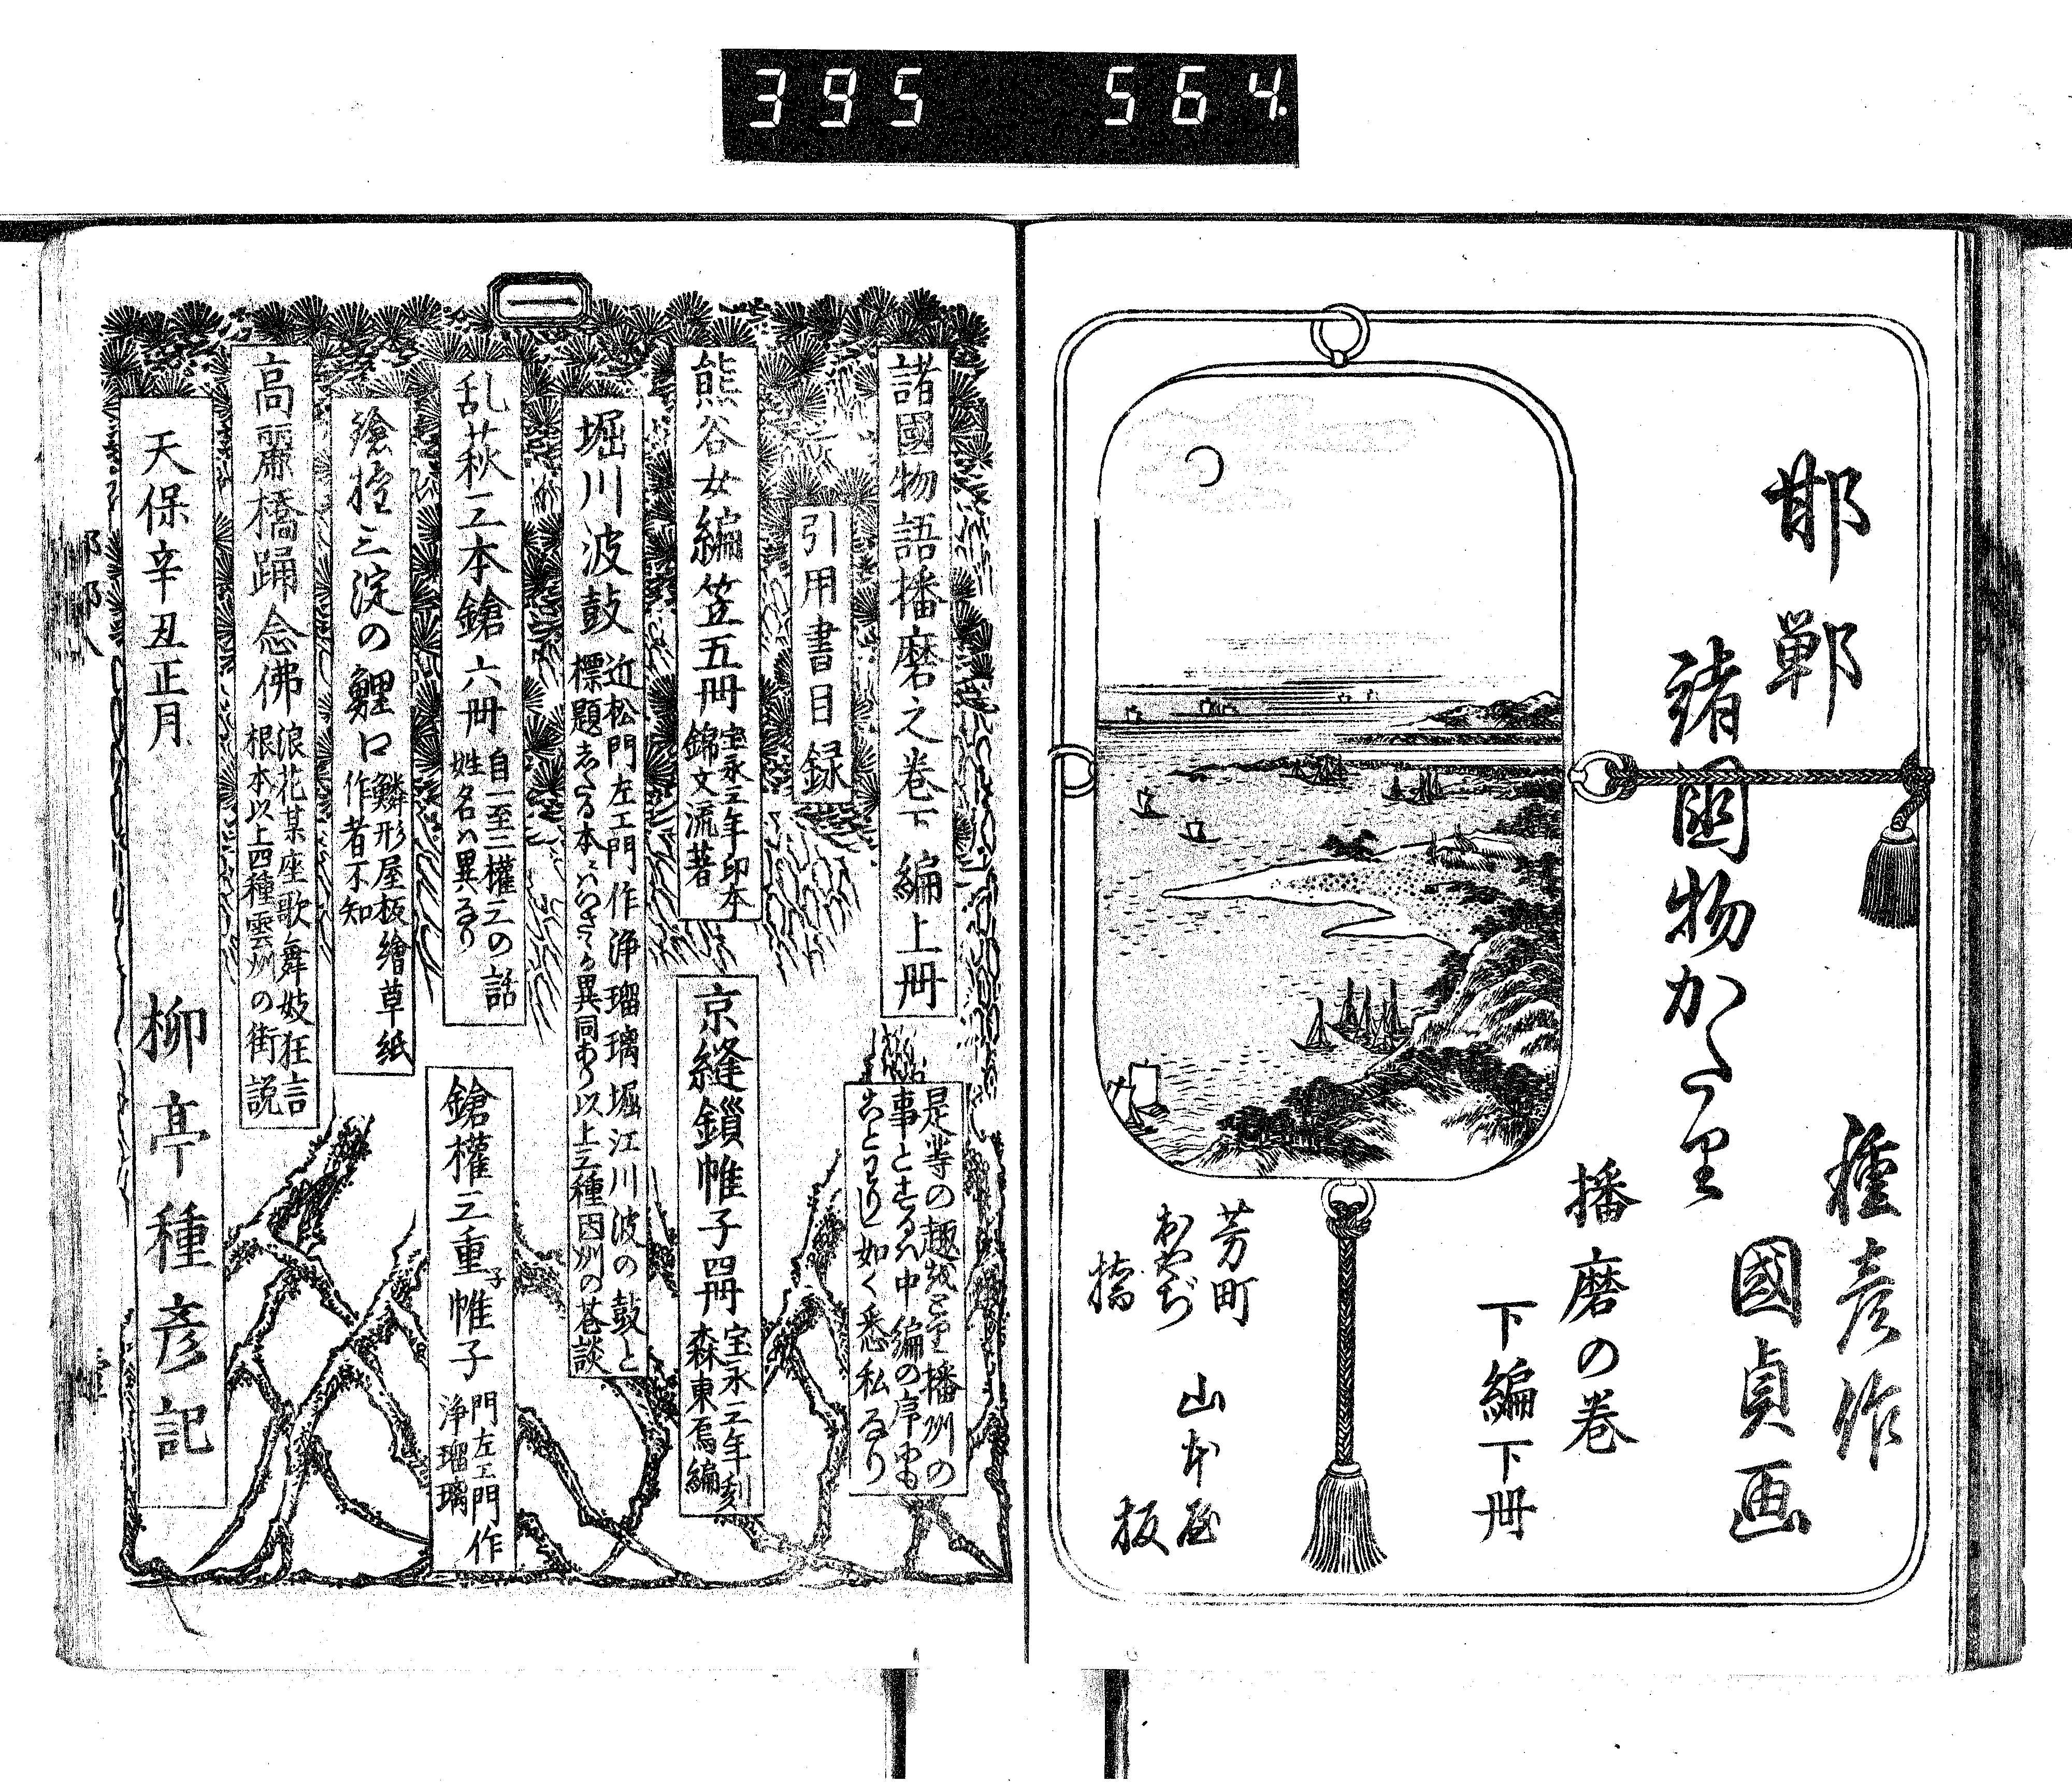 395 564
邯鄲
諸國物かたり
種彦作
國貞画
播磨の巻
下編下冊
芳町
おやぢ
橋
山本屋
板
一
諸國物語播磨之巻下編上冊
引用書目録
是等の趣
事とするハ中編の序にも
ことわりし如く悉私なり
熊谷女編笠五冊
宝永三年印本
錦文流著
京縫鎖帷子四冊
宝永三年刻
森東烏編
堀川波鼓
近松門左エ門作浄瑠璃堀江川波の鼓と
標題
異同あり以上三種因州の巷談
乱萩三本鎗六冊
自一至三權三の話
姓名ハ異なり
鎗權三重帷子
門左エ門作
浄瑠璃
鎗權三淀の鯉口
鱗形屋板繪草紙
作者不知
高麗橋踊念佛
浪花某座歌舞妓狂言
根本以上四種雲州の街説
天保辛丑正月
柳亭種彦記